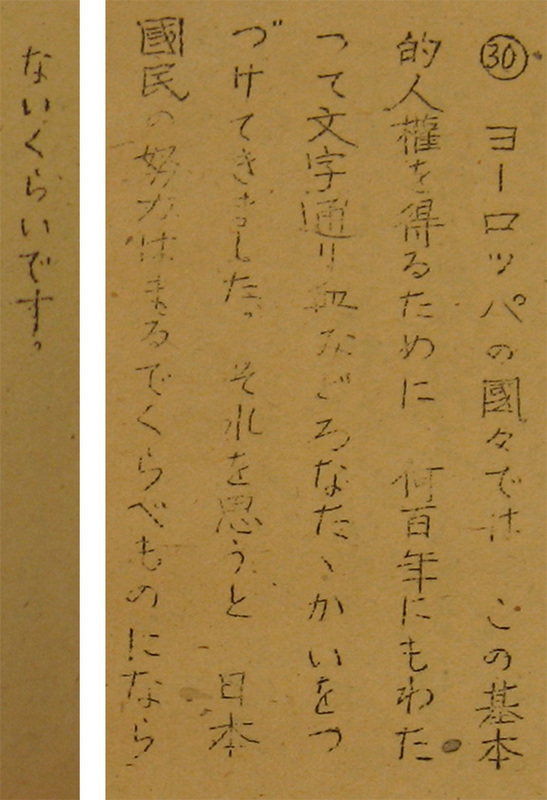 ㉚ ヨーロッパの國々では この基本
的人權を得るために 何百年にもわた
って文字通り血みどろなたゝかいをつ
づけてきました。それを思うと 日本
國民の努力はまるでくらべものになら
ないくらいです。